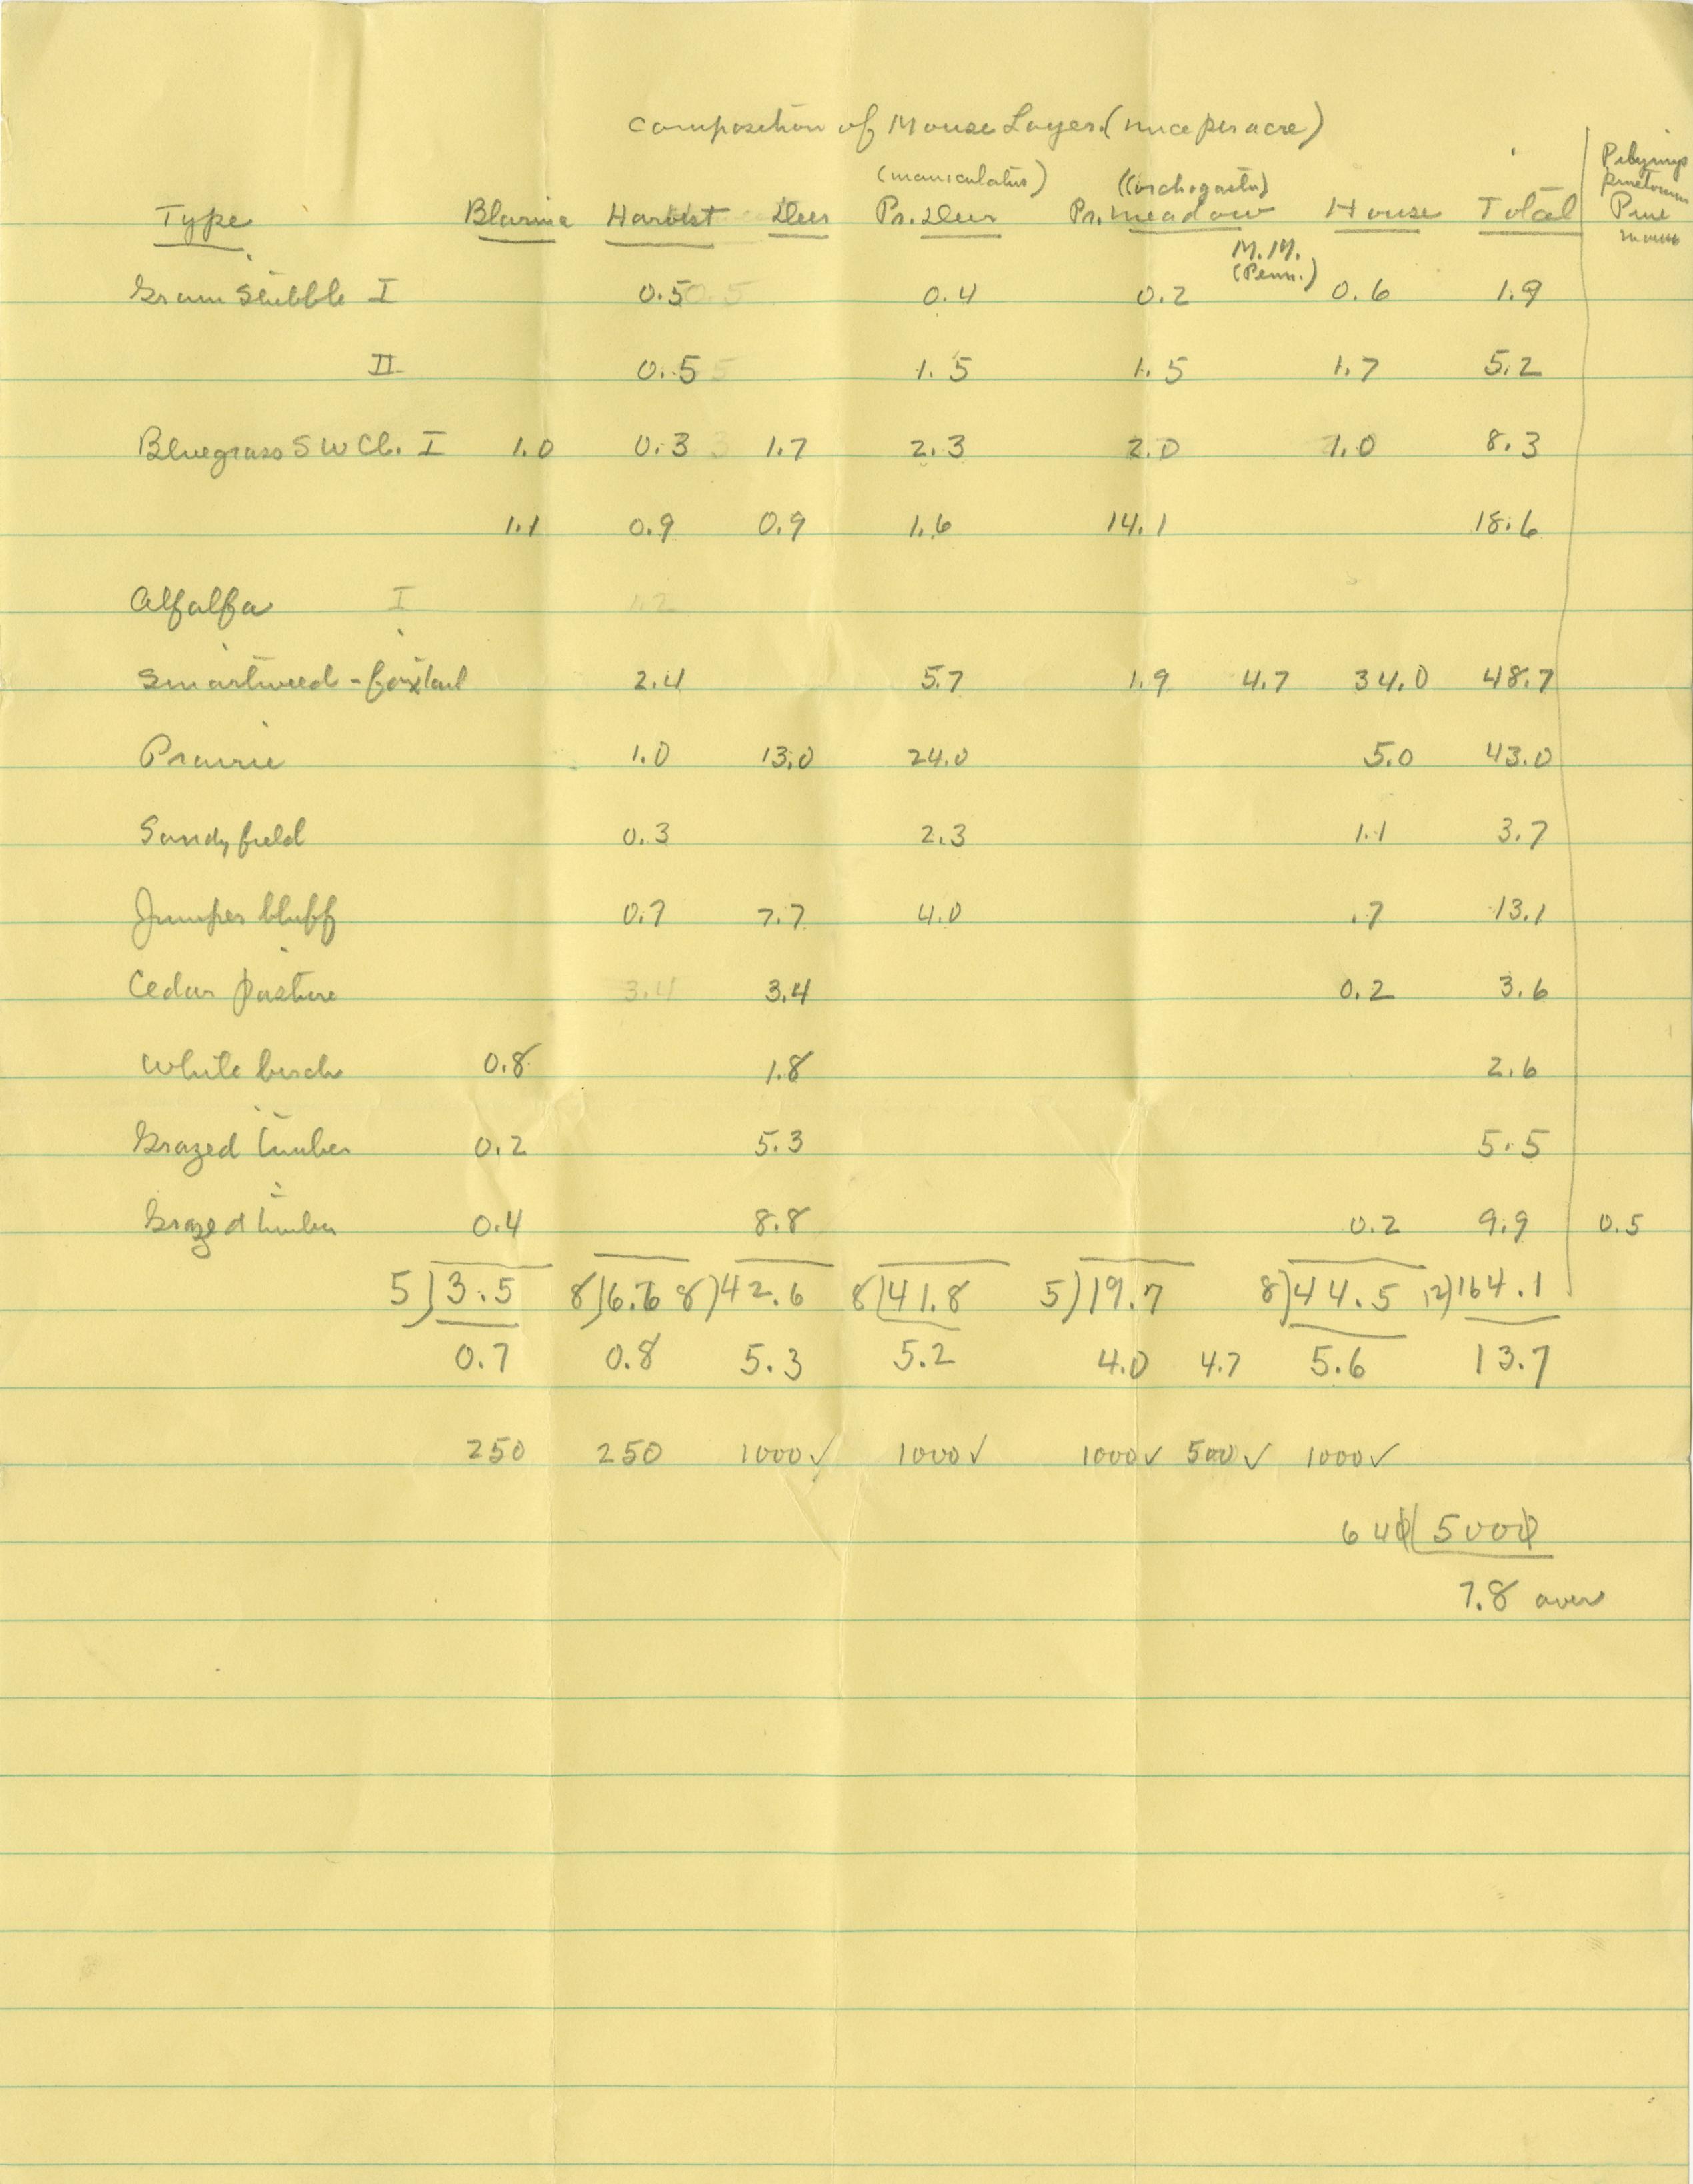 Composition of Mouse Layer. (mice per acre)
(maniculatus) (orchogaster) Pitymys
pinetorum
Type Blarina Harvest Deer Pr. Deer Pr. meadow House Total Pine
mouse
M.M.
(Penn.)
Grain Stubble I 0.5 0.4 0.2 0.6 1.9
II 0.5 1.5 1.5 1.7 5.2
Bluegrass Sw Cl. I 1.0 0.3 1.7 2.3 2.0 1.0 8.3
1.1 0.9 0.9 1.6 14.1 18.6
Alfalfa I 1.2
Smartweed - foxtail 2.4 5.7 1.9 4.7 34.0 48.7
Prairie 1.0 13.0 24.0 5.0 43.0
Sandy field 0.3 2.3 1.1 3.7
Juniper bluff 0.7 7.7 4.0 .7 13.1
Cedar pasture 3.4 3.4 0.2 3.6
White birch 0.8 1.8 2.6
Grazed timber 0.2 5.3 5.5
Grazed timber 0.4 8.8 0.2 9.9 0.5
5)3.5 8)6.6 8)42.6 8)41.8 5)19.7 8)44.5 12)164.1
0.7 0.8 5.3 5.2 4.0 4.7 5.6 13.7
250 250 1000✓ 1000✓ 1000✓ 500✓ 1000✓
640(5000
7.8 aver